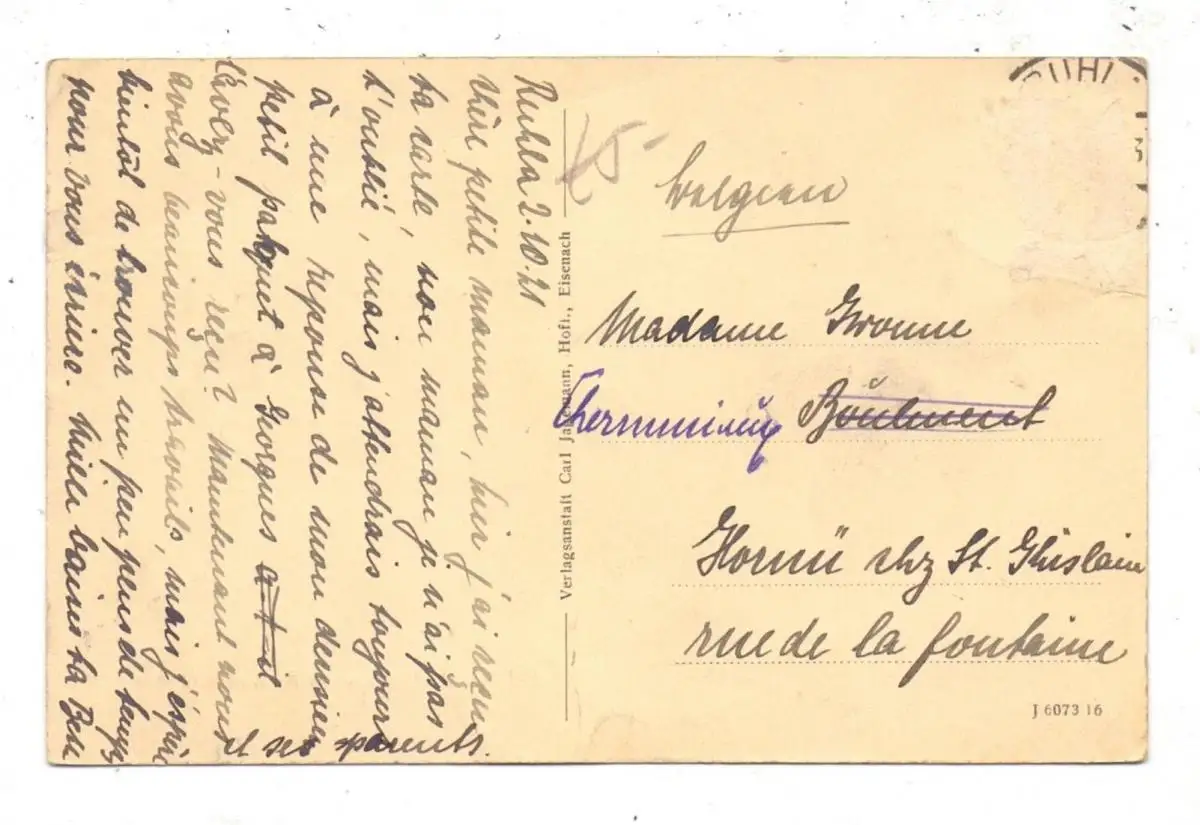 Ruhla 2.10.21
Chère petite maman, hier j'ai reçu
ta carte, non maman je n'ai pas
t'oublié, mais j'attendrais toujours
à une reponse de mon dernier
petit paquet à Gorgues a t il
L'avez-vous reçu? Maintenant nous
avons beaucoups travails, mais j'éspère
bientôt de trouver un peu plus de temps
pour vous écrire. Mille baisers ta Bese
et ses parents.
Verlagsanstalt Carl Jagemann, Hofl., Eisenach
45-
RUHL
Belgien
Madame Yvonne
Boulment
Hornü chz St. Ghislain
rue de la fontaine
J 6073 16